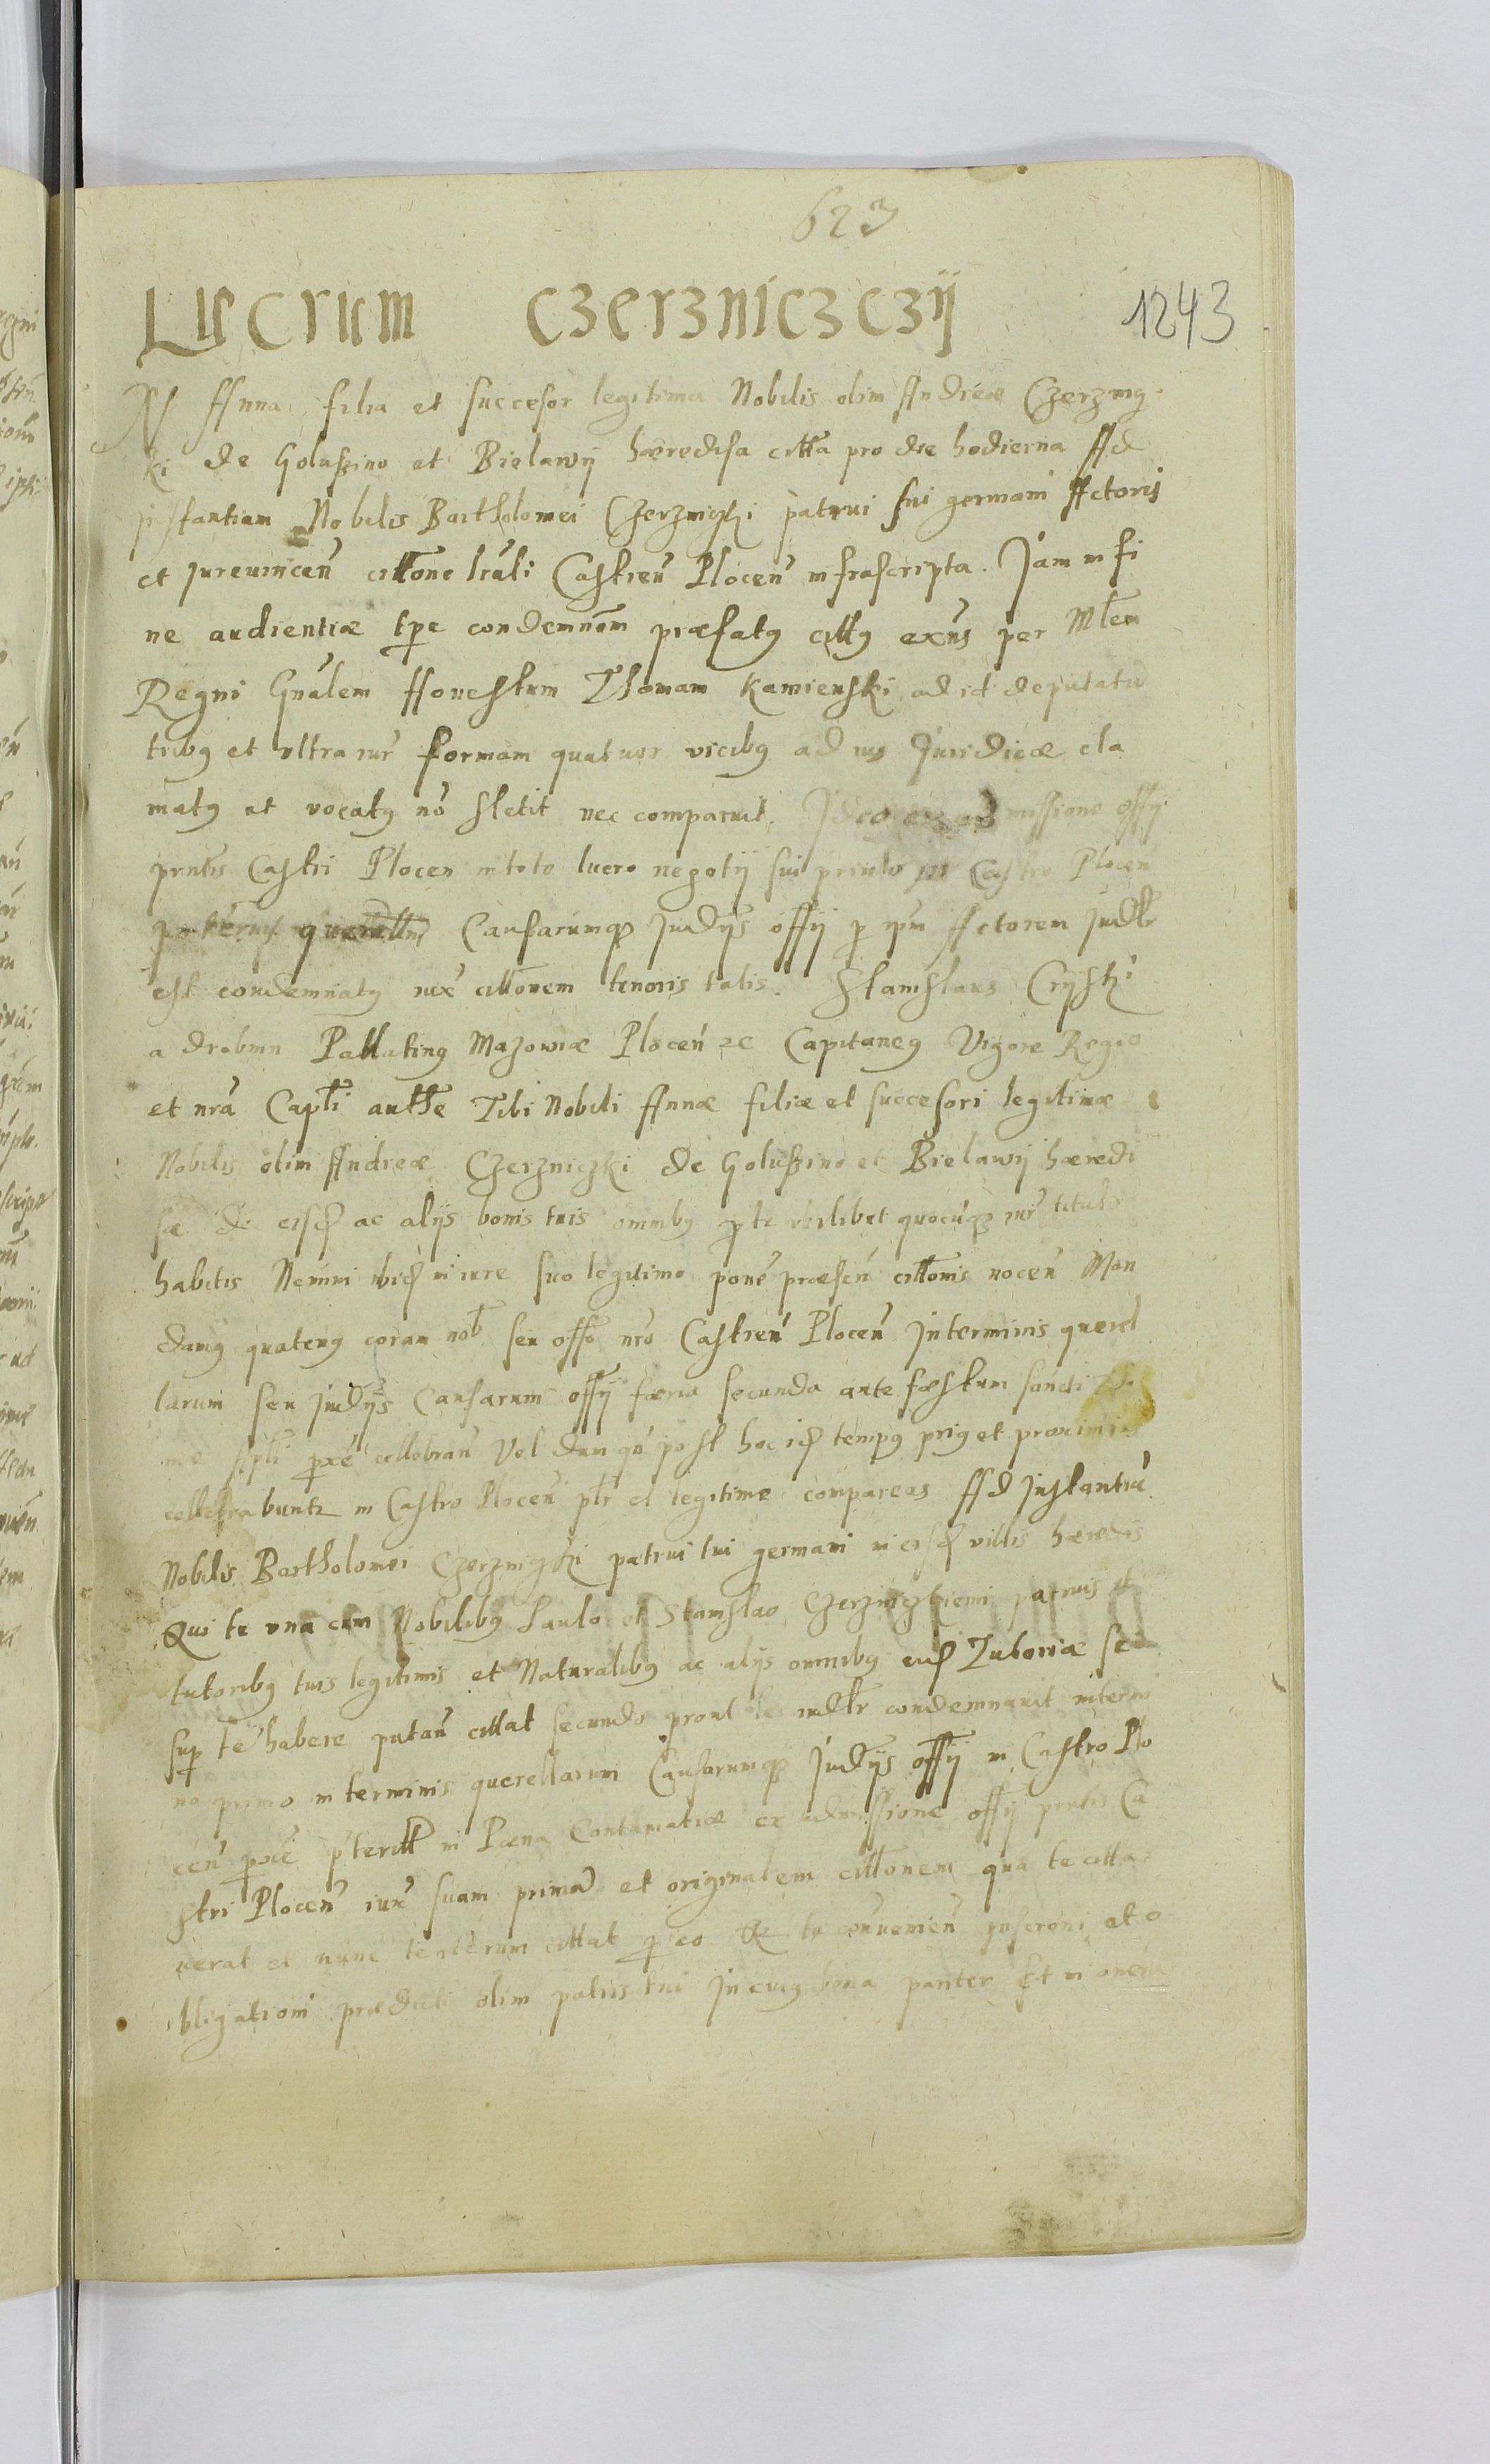 623
Lucrum Czerzniczczÿ
1243
N Anna filia et succesor legitima Nobilis olim Andreæ Czerznÿ
ki de Goluszino et Bielawÿ hæredisa citta pro die hodierna Ad
jnstantiam Nobilis Bartholomei Czerzniczki patrui sui germani Actoris
et jurevincen̄ citt͠one lrāli Castren̄ Plocen̄ infrascripta. Jam in fi
ne audientiæ tp̄e condemn͠om præfatꝰ cittꝰ exn̄s per Mt͠em
Regni Gn̄alem Honestum Thomam Kamienski ad id deputatū
tribꝰ et ultra iur̄ formam quatuor vicibꝰ ad ius Juridicæ cla
matꝰ et vocatꝰ nō stetit nec comparuit. Ideo ex admissione offÿ
pn̄tis Castri Plocen in toto lucro negotÿ sui in Castro Plocen
Causarumqȝ judÿs offÿ p ip̄m Actorem judlr̄
est condemnatꝰ iux̄ citt͠onem tenoris talis. Stanislaus Crÿski
a drobnin Pallatinꝰ Mazowiæ Plocen̄ ꝛc Capitaneꝰ Vigore Regia
et nrā Capt̄li autt͠e Tibi Nobili Annæ filiæ et succesori legitimæ
Nobilis olim Andreæ Czerzniczki de Goluszino et Bielawÿ hæredi
sæ de eisd ac alÿs bonis tuis omnibꝰ p te ubilibet quocūqȝ iur̄ titulo
habitis Nemini ibid in iure suo legitimo pone præsen̄ citt͠onis nocen̄ Man
damꝰ quatenꝰ coram nob̄ seu offo nr̄o Castren̄ Plocen̄ in terminis querel
larum seu judÿs Causarum offÿ færia secunda ante fæstum sancti
ap̄li pxē cellebran̄ Vel dum qn̄ post hoc id tempꝰ priꝰ et proximius
cellebrabuntr in Castro Plocen̄ pl̄r et legitime compareas Ad Instantiā
Nobilis Bartholomei Czerzniczki patrui tui germani in eisd villis hæredis
Qui te una cum Nobilibꝰ Paulo et Stanislao Czerzniczkiemi patruis et
tutoribꝰ tuis legitimis et Naturalibꝰ ac alÿs omnibꝰ eiusd Tutoriæ se
sup te habere putan̄ cittat secundo prout te iudlr̄ condemnavit in termi
no primo in terminis querellarum Causarumqȝ Judÿs offÿ in Castro Plo
cen̄ pxē p̄terittꝰ in Pæna Contumatiæ ex admissione offÿ pn̄tis Ca
stri Plocen̄ iux̄ suam primā et originalem citt͠onem qua te citta
verat et nunc iterum cittat p eo Qr tu convenien̄ inscr͠oni et o
bligationi prædicti olim patris tui In cuiꝰ bona pariter Et in onera